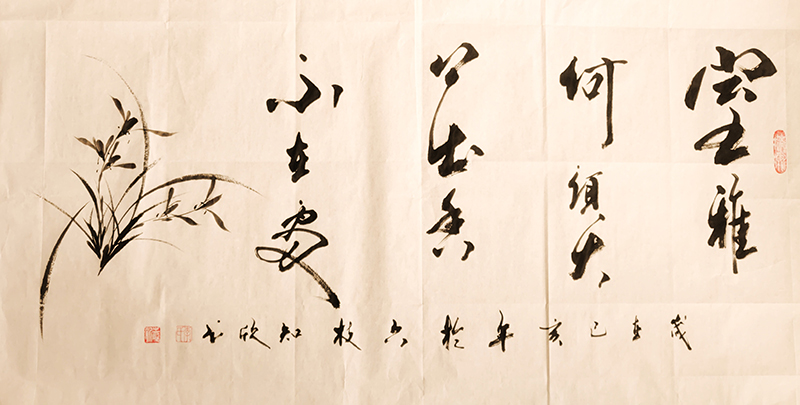 室雅
何須大
花香
不在多
歲在己亥年於六枝知欣书